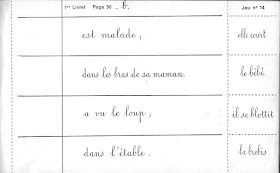 1er Livret Page 50 . b. Jeu n° 14
est malade, elle court
dans les bras de sa maman. le bébé
a vu le loup, il se blottit
dans l'étable. la brebis